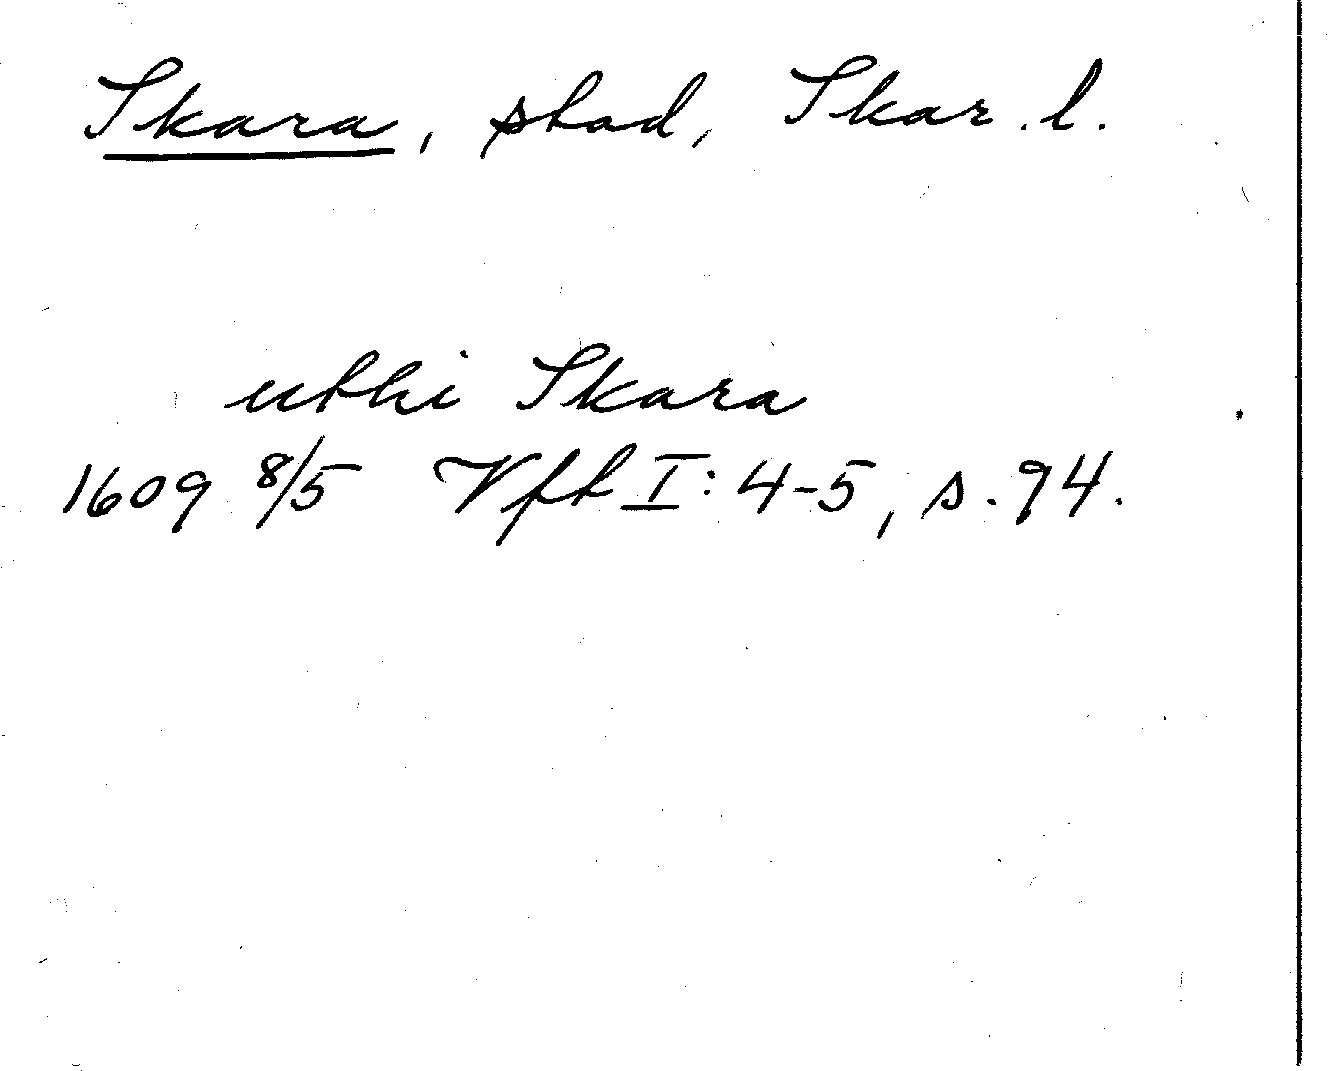 Skara, stad, Skar. l.
uthi Skara
1609 8/5 Vft I: 4-5, s. 94.